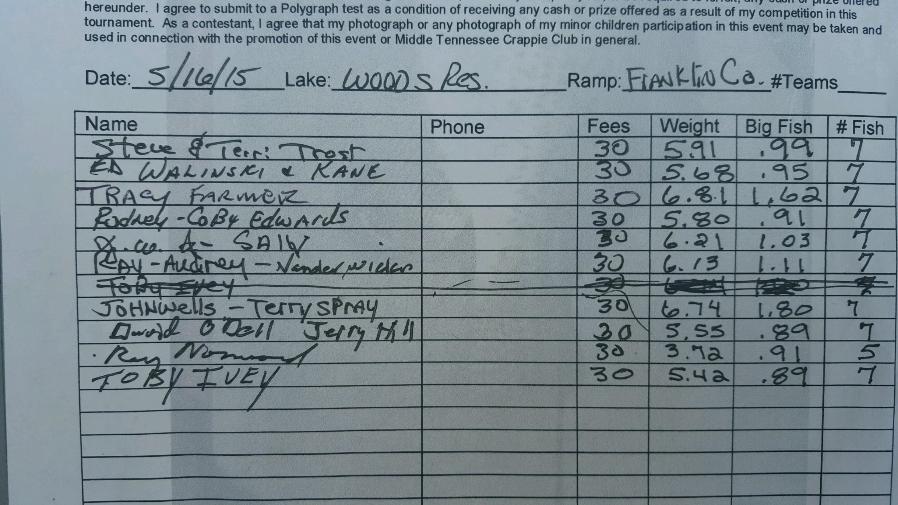 hereunder. I agree to submit to a Polygraph test as a condition of receiving any cash or prize offered as a result of my competition in this
tournament. As a contestant, I agree that my photograph or any photograph of my minor children participation in this event may be taken and
used in connection with the promotion of this event or Middle Tennessee Crappie Club in general.
Date: 5/16/15 Lake: WOODS Res. Ramp: FRANKLIN Co. #Teams
Name Phone Fees Weight Big Fish # Fish
Steve & Terri Trost 30 5.91 .99 7
ED WALINSKI & KANE 30 5.68 .95 7
TRACY FARMER 30 6.81 1.62 7
Rodney - CoBy Edwards 30 5.80 .91 7
30 6.21 1.03 7
RAY - Audrey - Vanderwielen 30 6.13 1.11 7
TOBY IVEY 30
JOHN Wells - Terry SPRAY 30 6.74 1.80 7
David O'Dell Jerry Hill 30 5.55 .89 7
Ray 30 3.72 .91 5
TOBY IVEY 30 5.42 .89 7